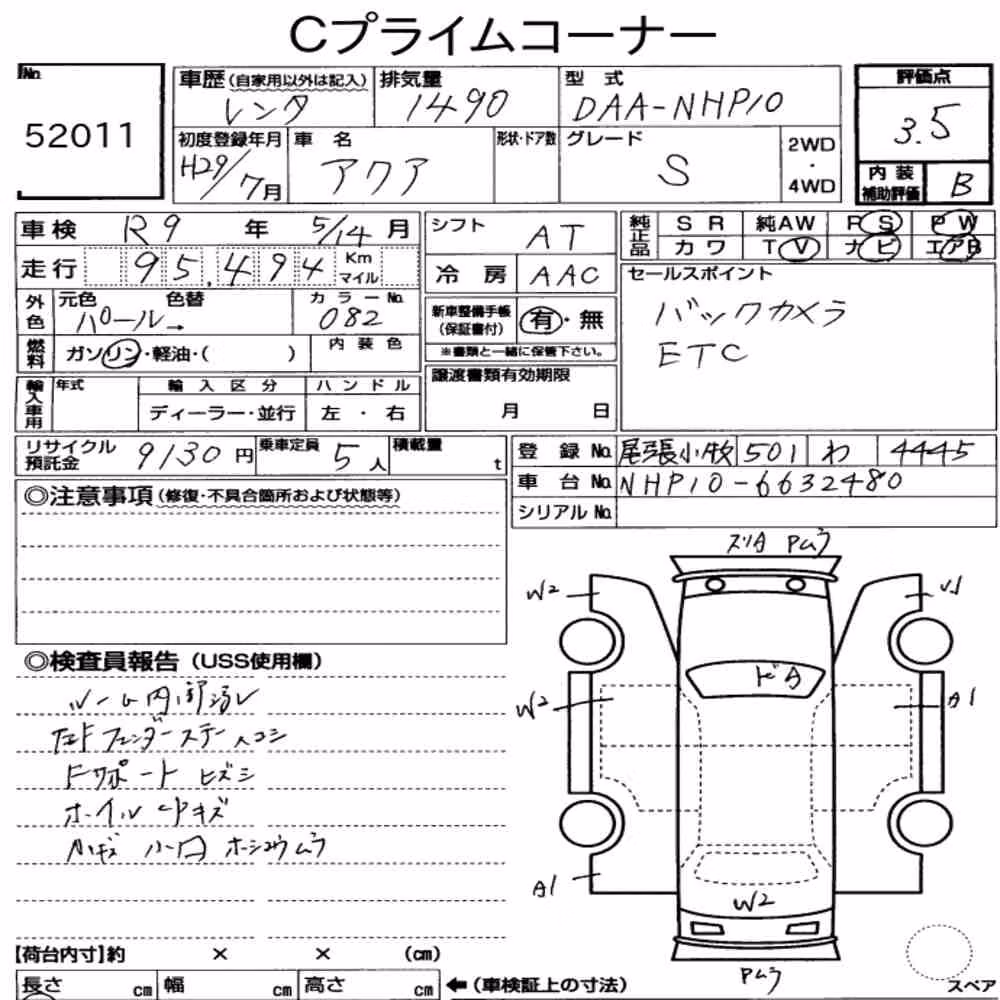 Cプライムコーナー
No.
52011
車歴(自家用以外は記入) レンタ
排気量 1490
型式 DAA-NHP10
評価点 3.5
初度登録年月 H29/7月
車名 アクア
形状・ドア数
グレード S
2WD・4WD
内装補助評価 B
車検 R9年 5/14月
シフト AT
純正品 SR 純AW PS PW
カワ TV ナビ エアB
走行 95,494 Km マイル
冷房 AAC
セールスポイント
バックカメラ
ETC
外色 元色 パール→ 色替
カラーNo. 082
新車整備手帳(保証書付) 有・無
※書類と一緒に保管下さい。
燃料 ガソリン・軽油・( )
内装色
譲渡書類有効期限
月 日
輸入車用 年式 輸入区分 ハンドル
ディーラー・並行 左・右
リサイクル預託金 9130円
乗車定員 5人
積載量 t
登録No. 尾張小牧 501 わ 4445
車台No. NHP10-6632480
シリアルNo.
◎注意事項(修復・不具合箇所および状態等)
◎検査員報告(USS使用欄)
ルーム内
フェンダーステー
ヒズミ
ホイル
小凹
スリA Pムラ
W2
ドA
W2
A1
A1
W2
Pムラ
【荷台内寸】約 × × (cm)
長さ cm 幅 cm 高さ cm ←(車検証上の寸法)
スペア